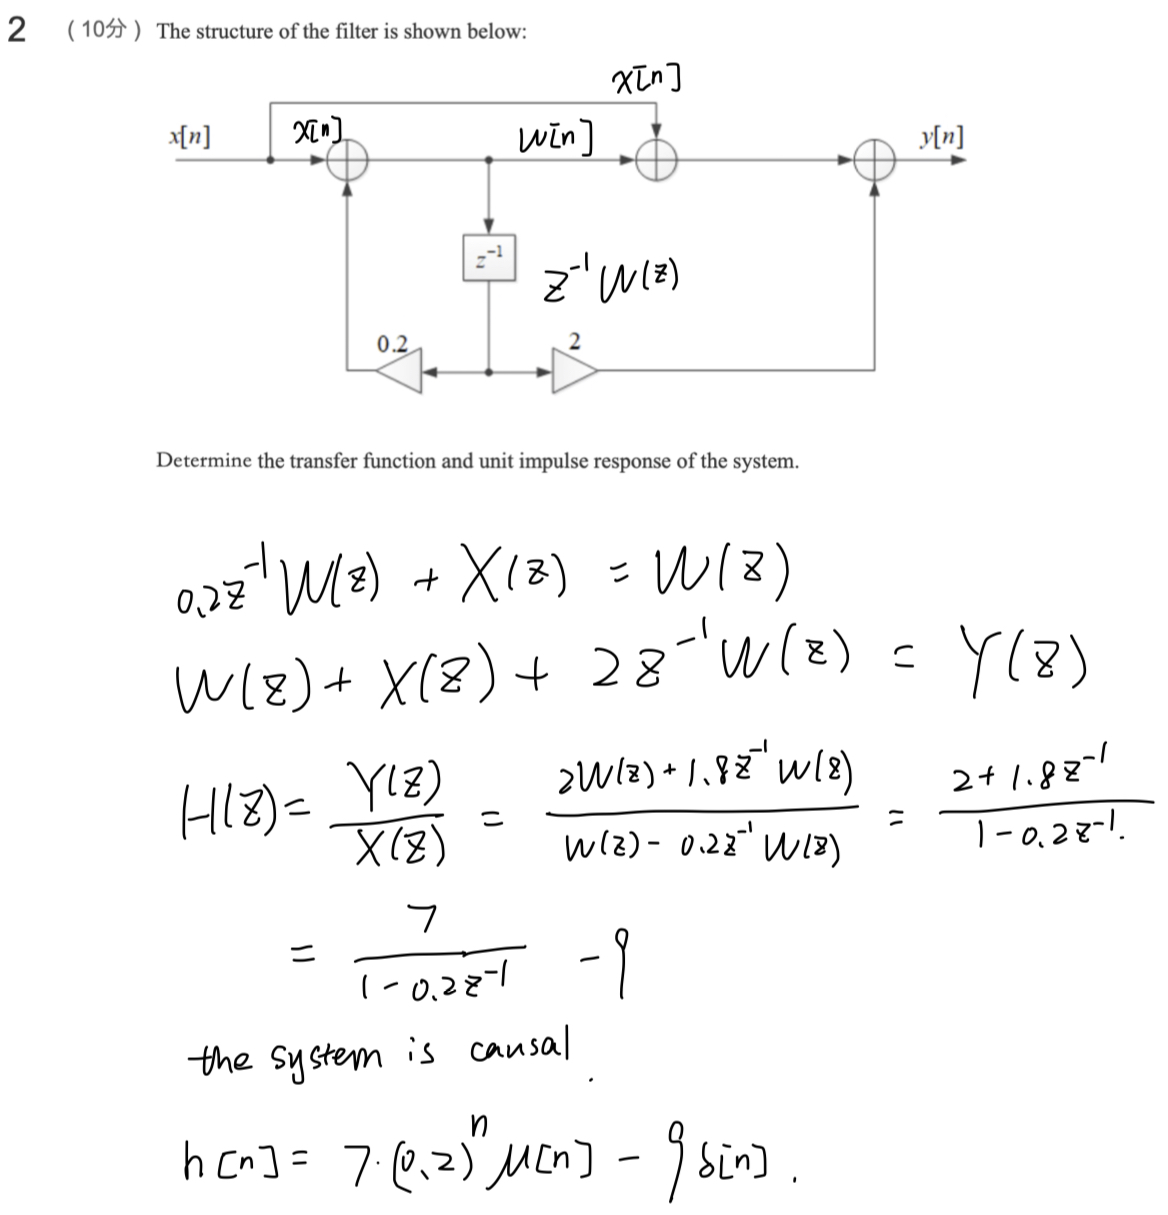 2 （10分）The structure of the filter is shown below:
x[n]
x[n] x[n] w[n] y[n]
z⁻¹
z⁻¹W(z)
0.2 2
Determine the transfer function and unit impulse response of the system.
0.2z⁻¹W(z) + X(z) = W(z)
W(z) + X(z) + 2z⁻¹W(z) = Y(z)
H(z) = Y(z)/X(z) = (2W(z) + 1.8z⁻¹W(z))/(W(z) - 0.2z⁻¹W(z)) = (2 + 1.8z⁻¹)/(1 - 0.2z⁻¹).
= 7/(1 - 0.2z⁻¹) - 9
the system is causal.
h[n] = 7·(0.2)ⁿ μ[n] - 9δ[n].